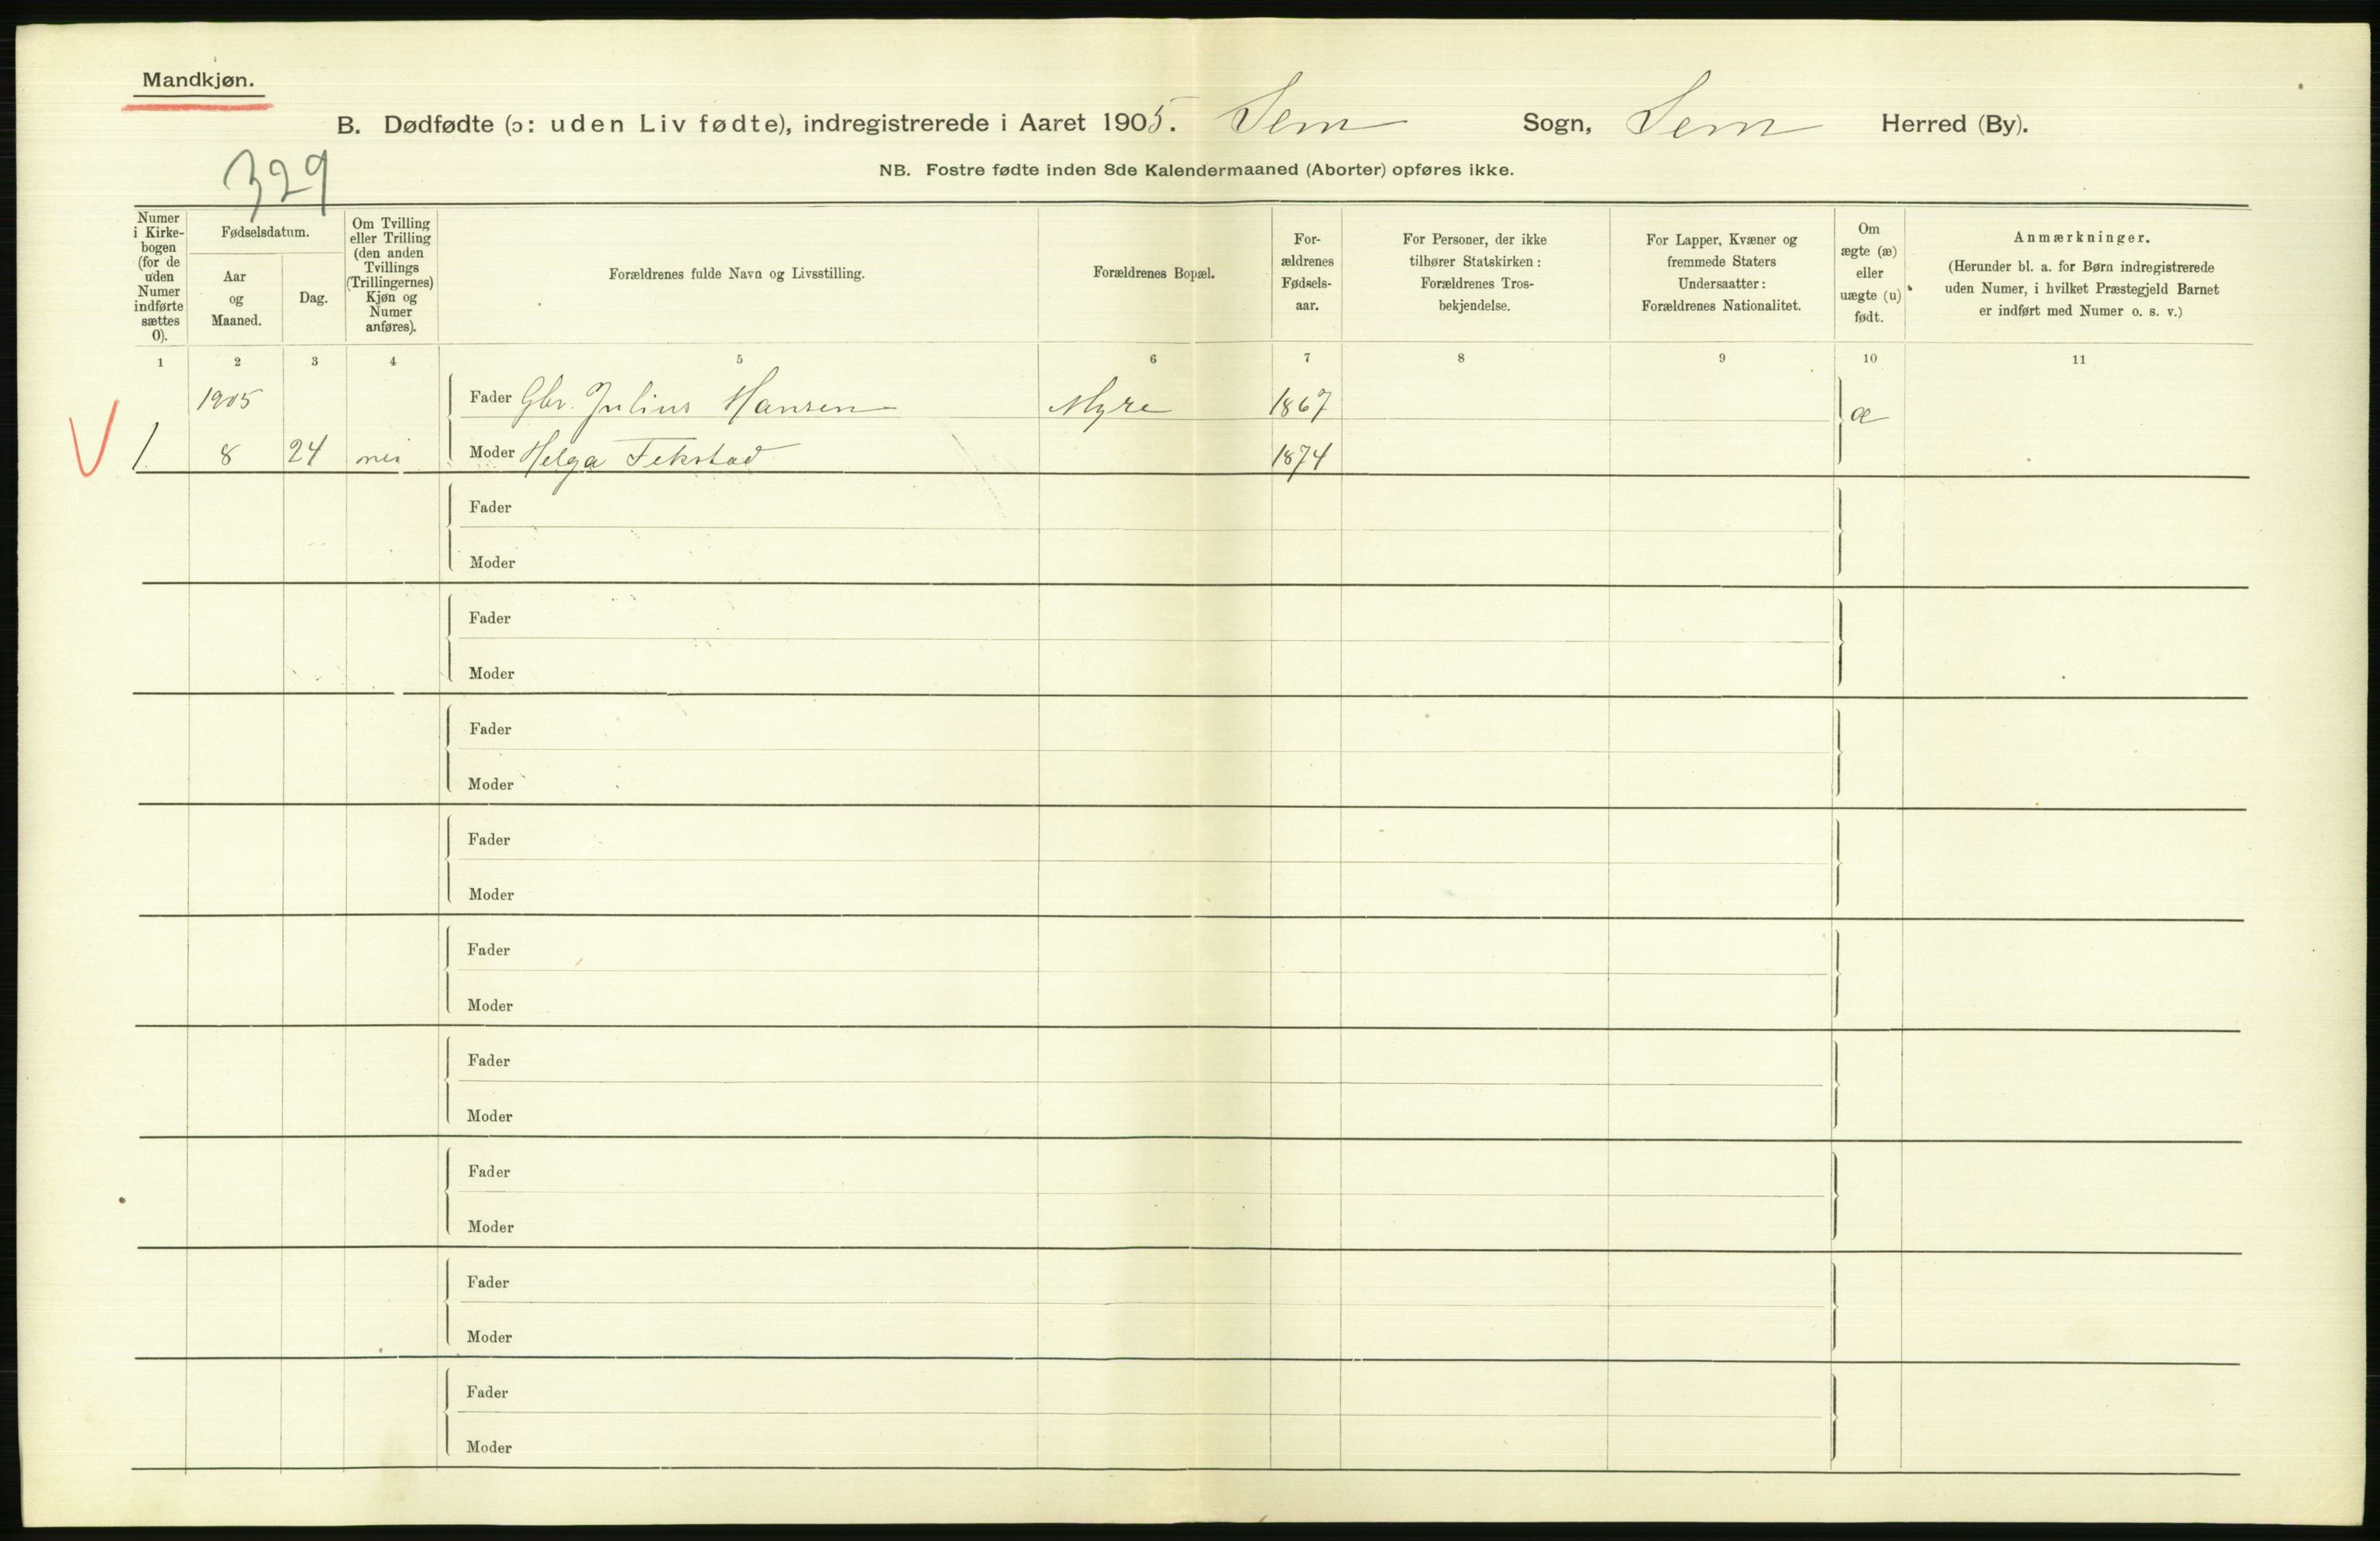 Mandkjøn.
B. Dødfødte (ɔ: uden Liv fødte), indregistrerede i Aaret 1905. Sem Sogn, Sem Herred (By).
329
NB. Fostre fødte inden 8de Kalendermaaned (Aborter) opføres ikke.
Numer
i Kirke-
bogen
(for de
uden
Numer
indførte
sættes
0).
Fødselsdatum.
Aar
og
Maaned.
Dag.
Om Tvilling
eller Trilling
(den anden
Tvillings
(Trillingernes)
Kjøn og
Numer
anføres).
Forældrenes fulde Navn og Livsstilling.
Forældrenes Bopæl.
For-
ældrenes
Fødsels-
aar.
For Personer, der ikke
tilhører Statskirken:
Forældrenes Tros-
bekjendelse.
For Lapper, Kvæner og
fremmede Staters
Undersaatter:
Forældrenes Nationalitet.
Om
ægte (æ)
eller
uægte (u)
født.
Anmærkninger.
(Herunder bl. a. for Børn indregistrerede
uden Numer, i hvilket Præstegjeld Barnet
er indført med Numer o. s. v.)
1 2 3 4 5 6 7 8 9 10 11
1905 Fader Gbr. Julius Hansen Myre 1867 æ
V 1. 8 24 nei Moder Helga Tekstad 1874
Fader
Moder
Fader
Moder
Fader
Moder
Fader
Moder
Fader
Moder
Fader
Moder
Fader
Moder
Fader
Moder
Fader
Moder